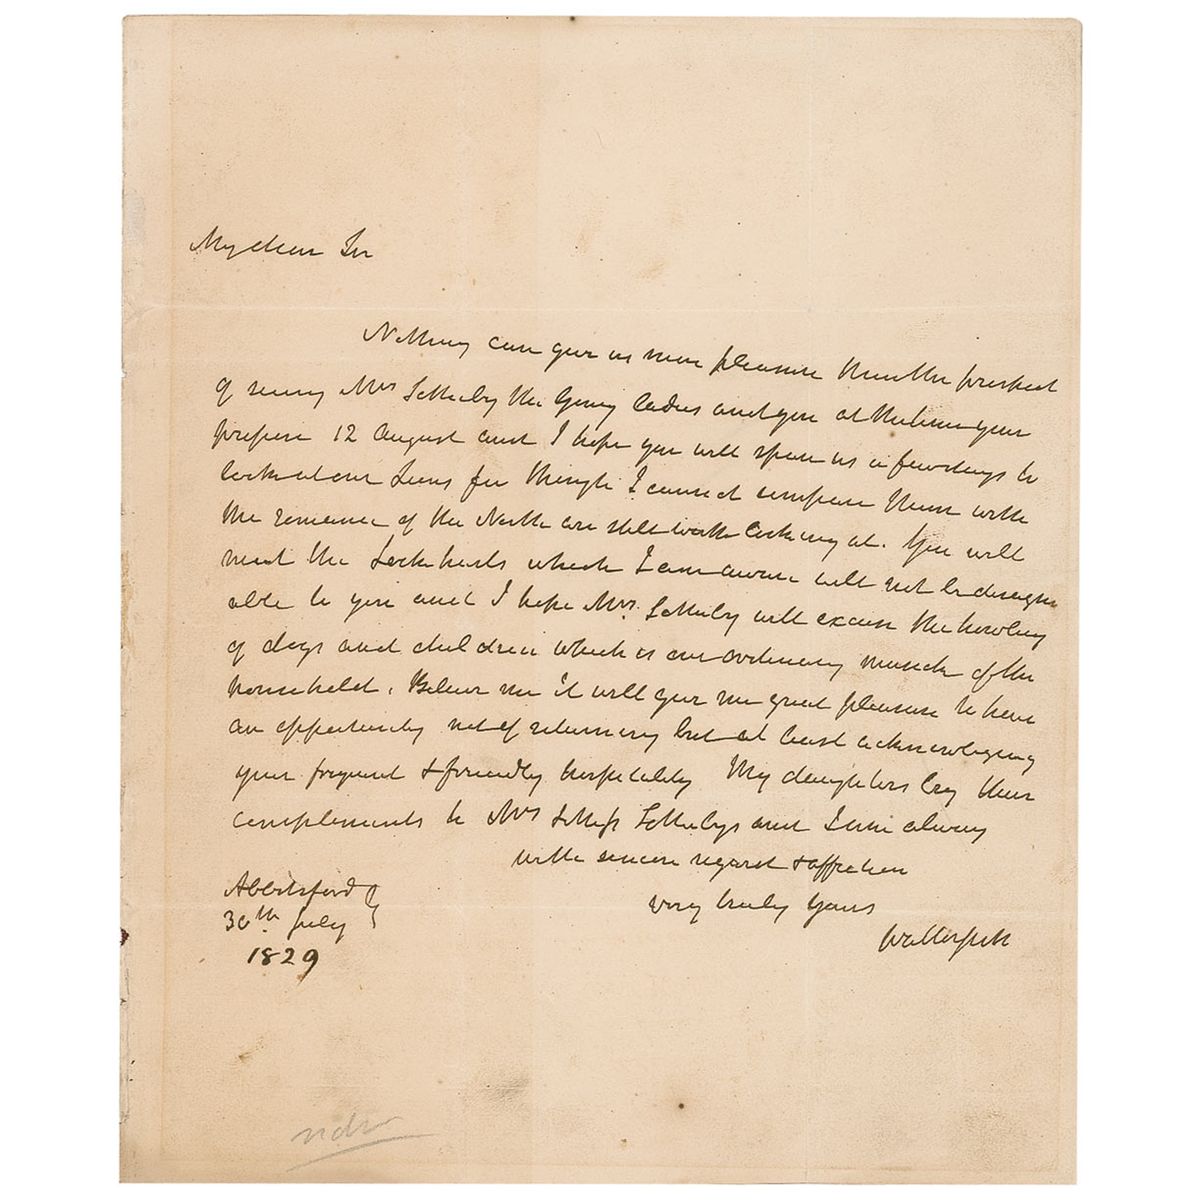 My dear Sir
Nothing can give us more pleasure than the prospect
of seeing Mrs Sotheby the young ladies and you at the time you
propose 12 August and I hope you will spare us a few days to
look at our Lions for though I cannot compare them with
the romance of the North are still worth looking at. You will
meet the Lockharts which I am aware will not be disagree
able to you and I hope Mrs. Sotheby will excuse the howling
of dogs and children which is our ordinary musick of the
household. Believe me it will give me great pleasure to have
an opportunity not of returning but at least acknowledging
your frequent & friendly hospitality My daughters beg their
compliments to Mrs & Miss Sothebys and I am always
with sincere regard & affection
very truly yours
Walter Scott
Abbotsford
30th July
1829